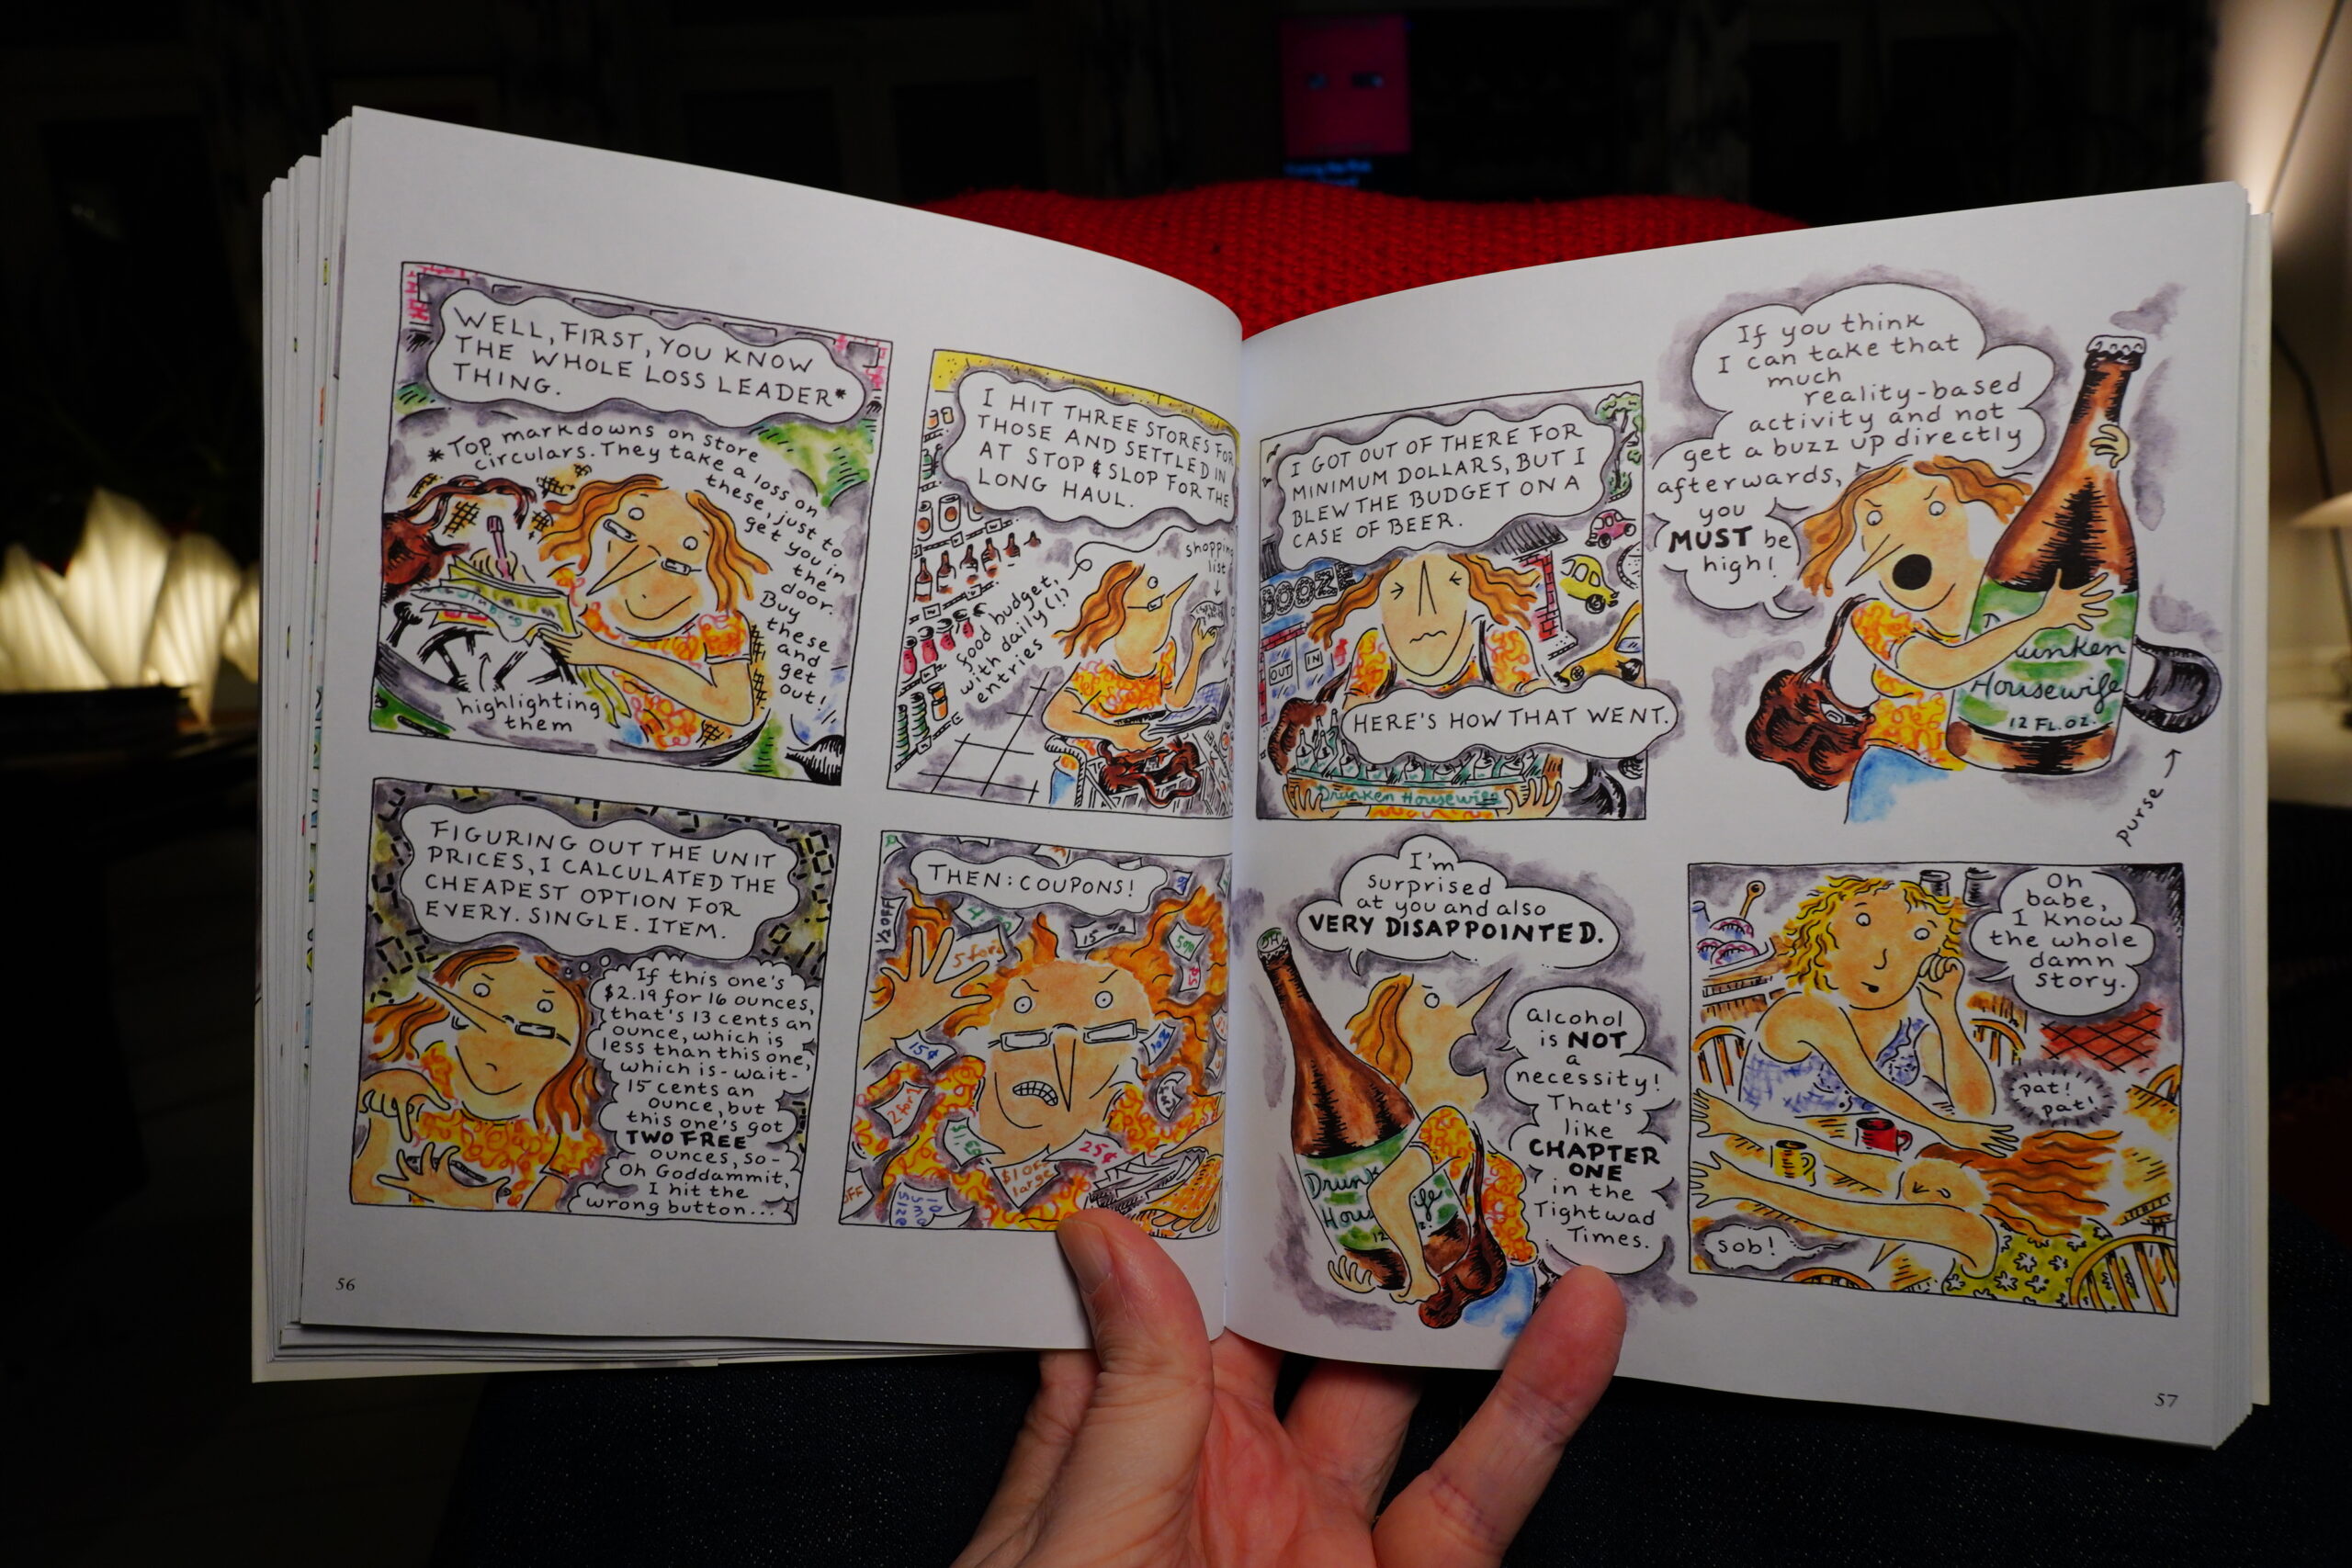 WELL, FIRST, YOU KNOW
THE WHOLE LOSS LEADER*
THING.
*Top markdowns on store
circulars. They take a loss on
these, just to
get you in
the
door.
Buy
these
and
get
out!
highlighting
them
I HIT THREE STORES FOR
THOSE AND SETTLED IN
AT STOP & SLOP FOR THE
LONG HAUL.
shopping
list
food budget,
with daily(!)
entries
FIGURING OUT THE UNIT
PRICES, I CALCULATED THE
CHEAPEST OPTION FOR
EVERY. SINGLE. ITEM.
If this one's
$2.19 for 16 ounces,
that's 13 cents an
ounce, which is
less than this one,
which is-wait-
15 cents an
ounce, but
this one's got
TWO FREE
ounces, so-
Oh Goddammit,
I hit the
wrong button...
THEN: COUPONS!
1/2 OFF
5 for
15%
50¢
15¢
2 for 1
25¢
$1 off
large
56
I GOT OUT OF THERE FOR
MINIMUM DOLLARS, BUT I
BLEW THE BUDGET ON A
CASE OF BEER.
BOOZE
OUT
IN
HERE'S HOW THAT WENT.
Drunken Housewife
If you think
I can take that
much
reality-based
activity and not
get a buzz up directly
afterwards,
you
MUST be
high!
Drunken
Housewife
12 FL. OZ.
purse
I'm
surprised
at you and also
VERY DISAPPOINTED.
Alcohol
is NOT
a
necessity!
That's
like
CHAPTER
ONE
in the
Tightwad
Times.
Drunk
Hou
ife
12
Oh
babe,
I know
the whole
damn
story.
pat!
pat!
sob!
57